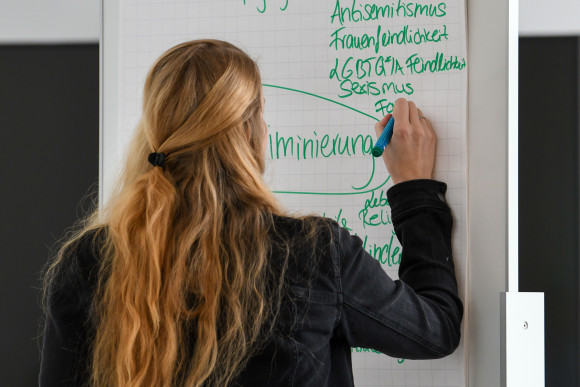 Antisemitismus
Frauenfeindlichkeit
LGBTQ*IA Feindlichkeit
Sexismus
Fa
iminierung
Leb
Reli
inder